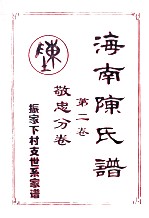 海南陳氏譜
第二卷
敬忠分卷
振家下村支世系家谱
陳